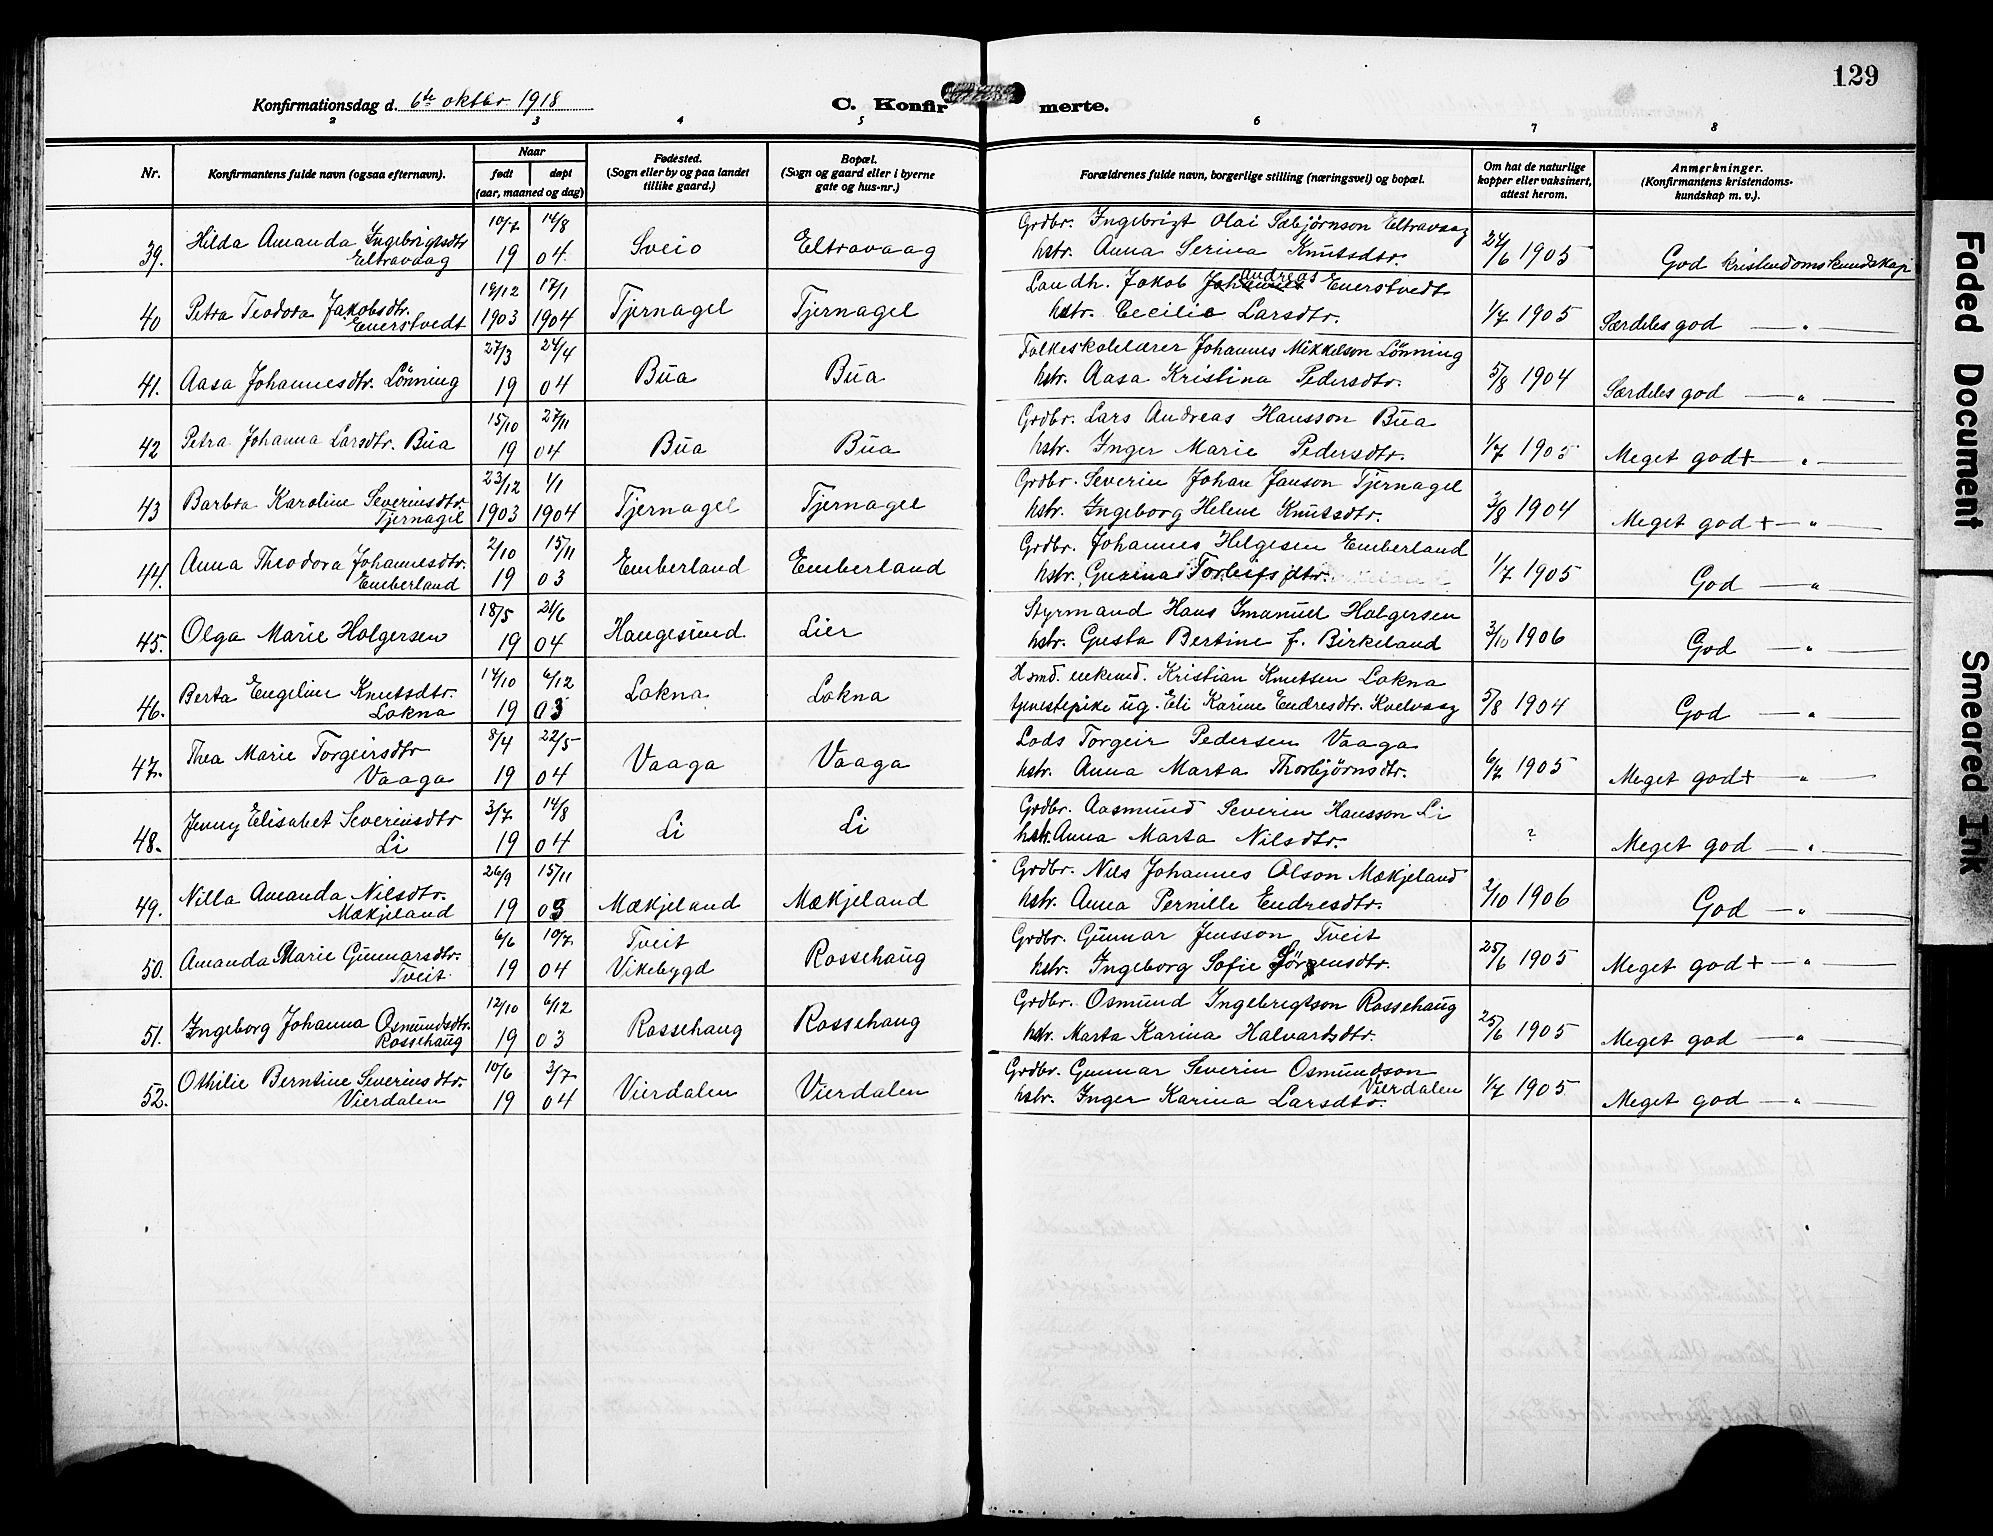 129
Konfirmationsdag d. 6te oktbr. 1918
C. Konfirmerte.
2 3 4 5 6 7 8
Nr.
Konfirmantens fulde navn (ogsaa efternavn).
Naar
født
døpt
(aar, maaned og dag)
Fødested.
(Sogn eller by og paa landet
tillike gaard.)
Bopæl.
(Sogn og gaard eller i byerne
gate og hus-nr.)
Forældrenes fulde navn, borgerlige stilling (næringsvei) og bopæl.
Om hat de naturlige
kopper eller vaksinert,
attest herom.
Anmerkninger.
(Konfirmantens kristendoms-
kundskap m. v.).
39. Hilda Amanda Ingebrigtsdtr Eltravaag 10/7 19 14/8 04 Sveio Eltravaag
Grdbr. Ingebrigt Olai Sæbjørnson Eltravaag
hstr. Anna Serina Knutsdtr. 24/6 1905 God kristendomskundskap
40 Petra Teodora Jakobsdtr. Emerstvedt 19/12 1903 17/1 1904 Tjernagel Tjernagel
Landh. Jakob Andreas Emerstvedt
hstr. Cecilie Larsdtr. 1/7 1905 Særdeles god — " —
41. Aasa Johannesdtr. Lønning 27/3 19 24/4 04 Bua Bua
Folkeskolelærer Johannes Mikkelson Lønning
hstr. Aasa Kristina Pedersdtr. 5/8 1904 Særdeles god — " —
42 Petra Johanna Larsdtr. Bua 15/10 19 27/11 04 Bua Bua
Grdbr. Lars Andreas Hansson Bua
hstr. Inger Marie Pedersdtr. 1/7 1905 Meget god + — " —
43 Barbra Karoline Severinsdtr. Tjernagel 23/12 1903 1/1 1904 Tjernagel Tjernagel
Grdbr. Severin Johan Janson Tjernagel
hstr. Ingeborg Helene Knutsdtr. 3/8 1904 Meget god + — " —
44. Anna Theodora Johannesdtr. Emberland 2/10 19 15/11 03 Emberland Emberland
Grdbr. Johannes Helgesen Emberland
hstr. Torleifsdtr. 1/7 1905 God — " —
45. Olga Marie Holgersen 18/5 19 21/6 04 Haugesund Lier
Styrmand Hans Imanuel Holgersen
hstr. Gusta Bertine f. Birkeland 3/10 1906 God — " —
46. Berta Engeline Knutsdtr. Lokna 14/10 19 6/12 03 Lokna Lokna
enkemd. Kristian Knutsen Lokna
tjenestepike ug. Eli Karine Endresdtr. Kvelvaag 5/8 1904 God — " —
47. Thea Marie Torgeirsdtr Vaaga 8/4 19 22/5 04 Vaaga Vaaga
Lods Torgeir Pedersen Vaaga
hstr. Anna Marta Thorbjørnsdtr. 6/7 1905 Meget god + — " —
48. Jenny Elisabet Severinsdtr Li 3/7 19 14/8 04 Li Li
Grdbr. Aasmund Severin Hansson Li
hstr. Anna Marta Nilsdtr. ? Meget god — " —
49. Nilla Amanda Nilsdtr. Mækjeland 26/9 19 15/11 03 Mækjeland Mækjeland
Grdbr. Nils Johannes Olson Mækjeland
hstr. Anna Pernille Endresdtr. 2/10 1906 God — " —
50. Amanda Marie Gunnarsdtr. Tveit. 6/6 19 10/7 04 Tveit Vikebygd Rossehaug
Grdbr. Gunnar Jensson Tveit
hstr. Ingeborg Sofie Jørgensdtr. 25/6 1905 Meget god + — " —
51. Ingeborg Johanna Osmundsdtr. Rossehaug 12/10 19 6/12 03 Rossehaug Rossehaug
Grdbr. Osmund Ingebrigtson Rossehaug
hstr. Marta Karina Halvardsdtr. 25/6 1905 Meget god — " —
52. Othilie Berntine Severinsdtr. Vierdalen 10/6 19 3/7 04 Vierdalen Vierdalen
Grdbr. Gunnar Severin Osmundson Vierdalen
hstr. Inger Karina Larsdtr. 1/7 1905 Meget god — " —
Faded Document
Smeared Ink